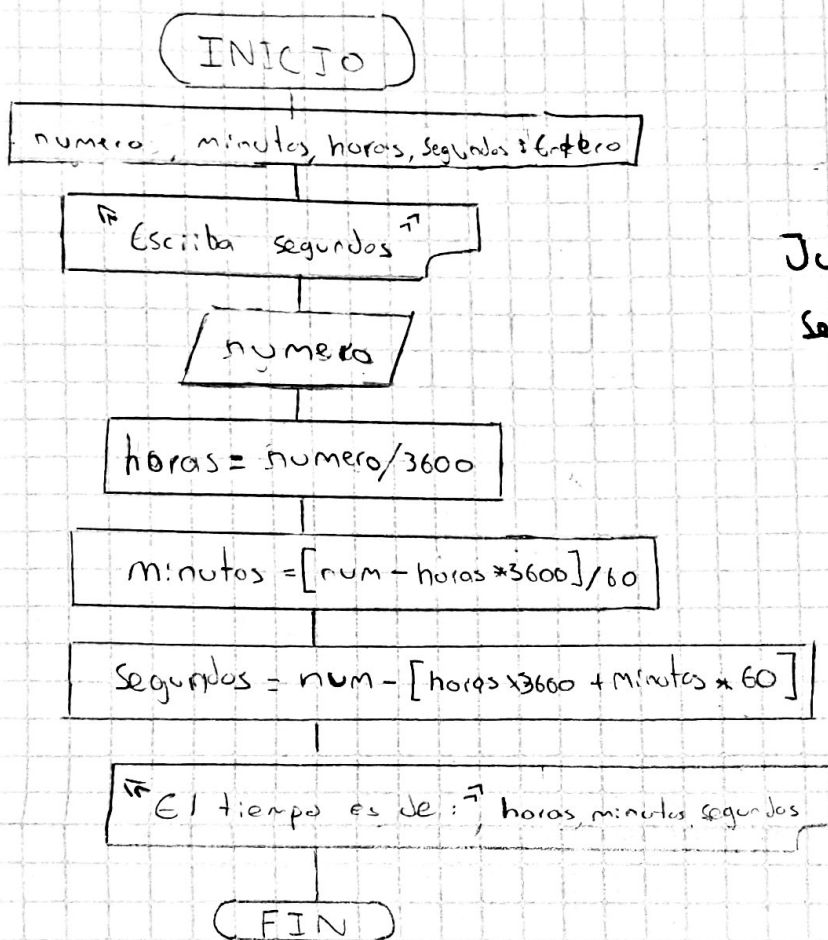 INICIO
numero, minutos, horas, segundos : Entero
"Escriba segundos"
numero
horas = numero/3600
minutos = [num - horas *3600]/60
segundos = num - [horas *3600 + minutos * 60]
"El tiempo es de:", horas, minutos, segundos
FIN